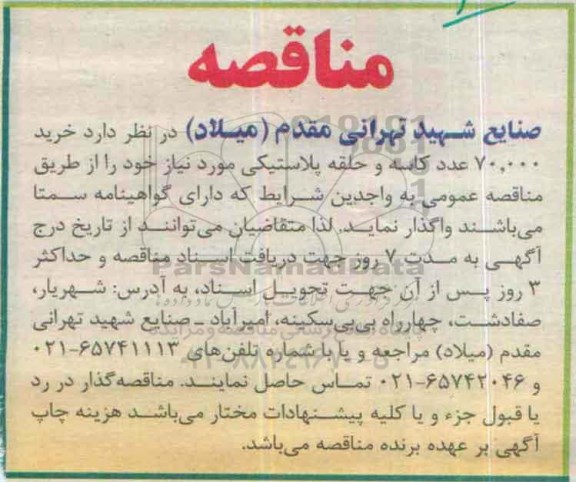 مناقصه
صنایع شهید تهرانی مقدم (میلاد) در نظر دارد خرید
۷۰,۰۰۰ عدد کاسه و حلقه پلاستیکی مورد نیاز خود را از طریق
مناقصه عمومی به واجدین شرایط که دارای گواهینامه سمتا
می‌باشند واگذار نماید. لذا متقاضیان می‌توانند از تاریخ درج
آگهی به مدت ۷ روز جهت دریافت اسناد مناقصه و حداکثر
ParsNamadData
۳ روز پس از آن جهت تحویل اسناد، به آدرس: شهریار،
صفادشت، چهارراه بی‌بی‌سکینه، امیرآباد ـ صنایع شهید تهرانی
مقدم (میلاد) مراجعه و یا با شماره تلفن‌های ۶۵۷۴۱۱۱۳-۰۲۱
و ۶۵۷۴۲۰۴۶-۰۲۱ تماس حاصل نمایند. مناقصه‌گذار در رد
یا قبول جزء و یا کلیه پیشنهادات مختار می‌باشد هزینه چاپ
آگهی بر عهده برنده مناقصه می‌باشد.